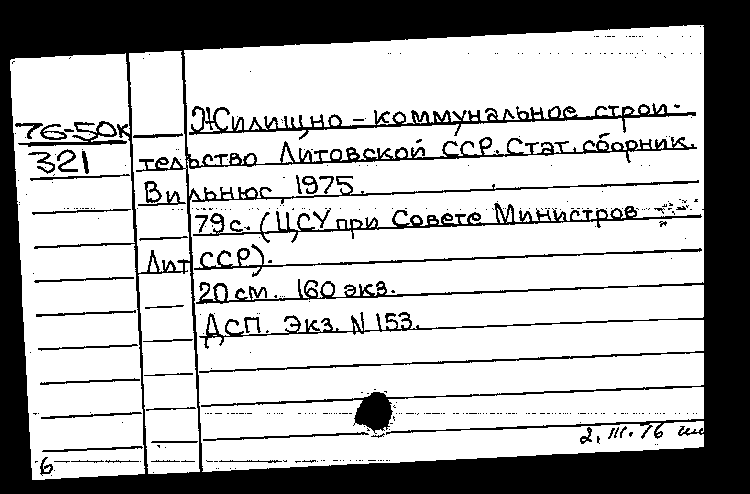 76-50к Жилищно-коммунальное строи-
321 тельство Литовской ССР. Стат. сборник.
Вильнюс, 1975.
79с. (ЦСУ при Совете Министров
Лит ССР).
20 см. 160 экз.
ДСП. Экз. N 153.
2.III.76
6